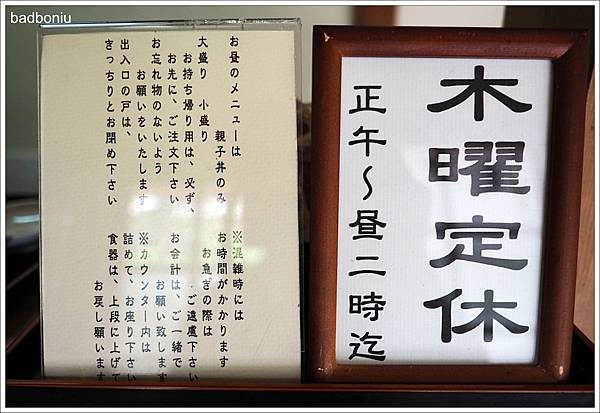 badboniu
木曜定休
正午〜昼二時迄
お昼のメニューは
親子丼のみ
大盛り 小盛り
お持ち帰り用は、必ず、
お先に、ご注文下さい
お忘れ物のないよう
お願いをいたします
出入口の戸は、
きっちりとお閉め下さい
※混雑時には
お時間がかかります
お急ぎの際は
ご遠慮下さい
お会計は、ご一緒で
お願い致します
※カウンター内は
詰めて、お座り下さい
食器は、上段に上げて
お戻し願います